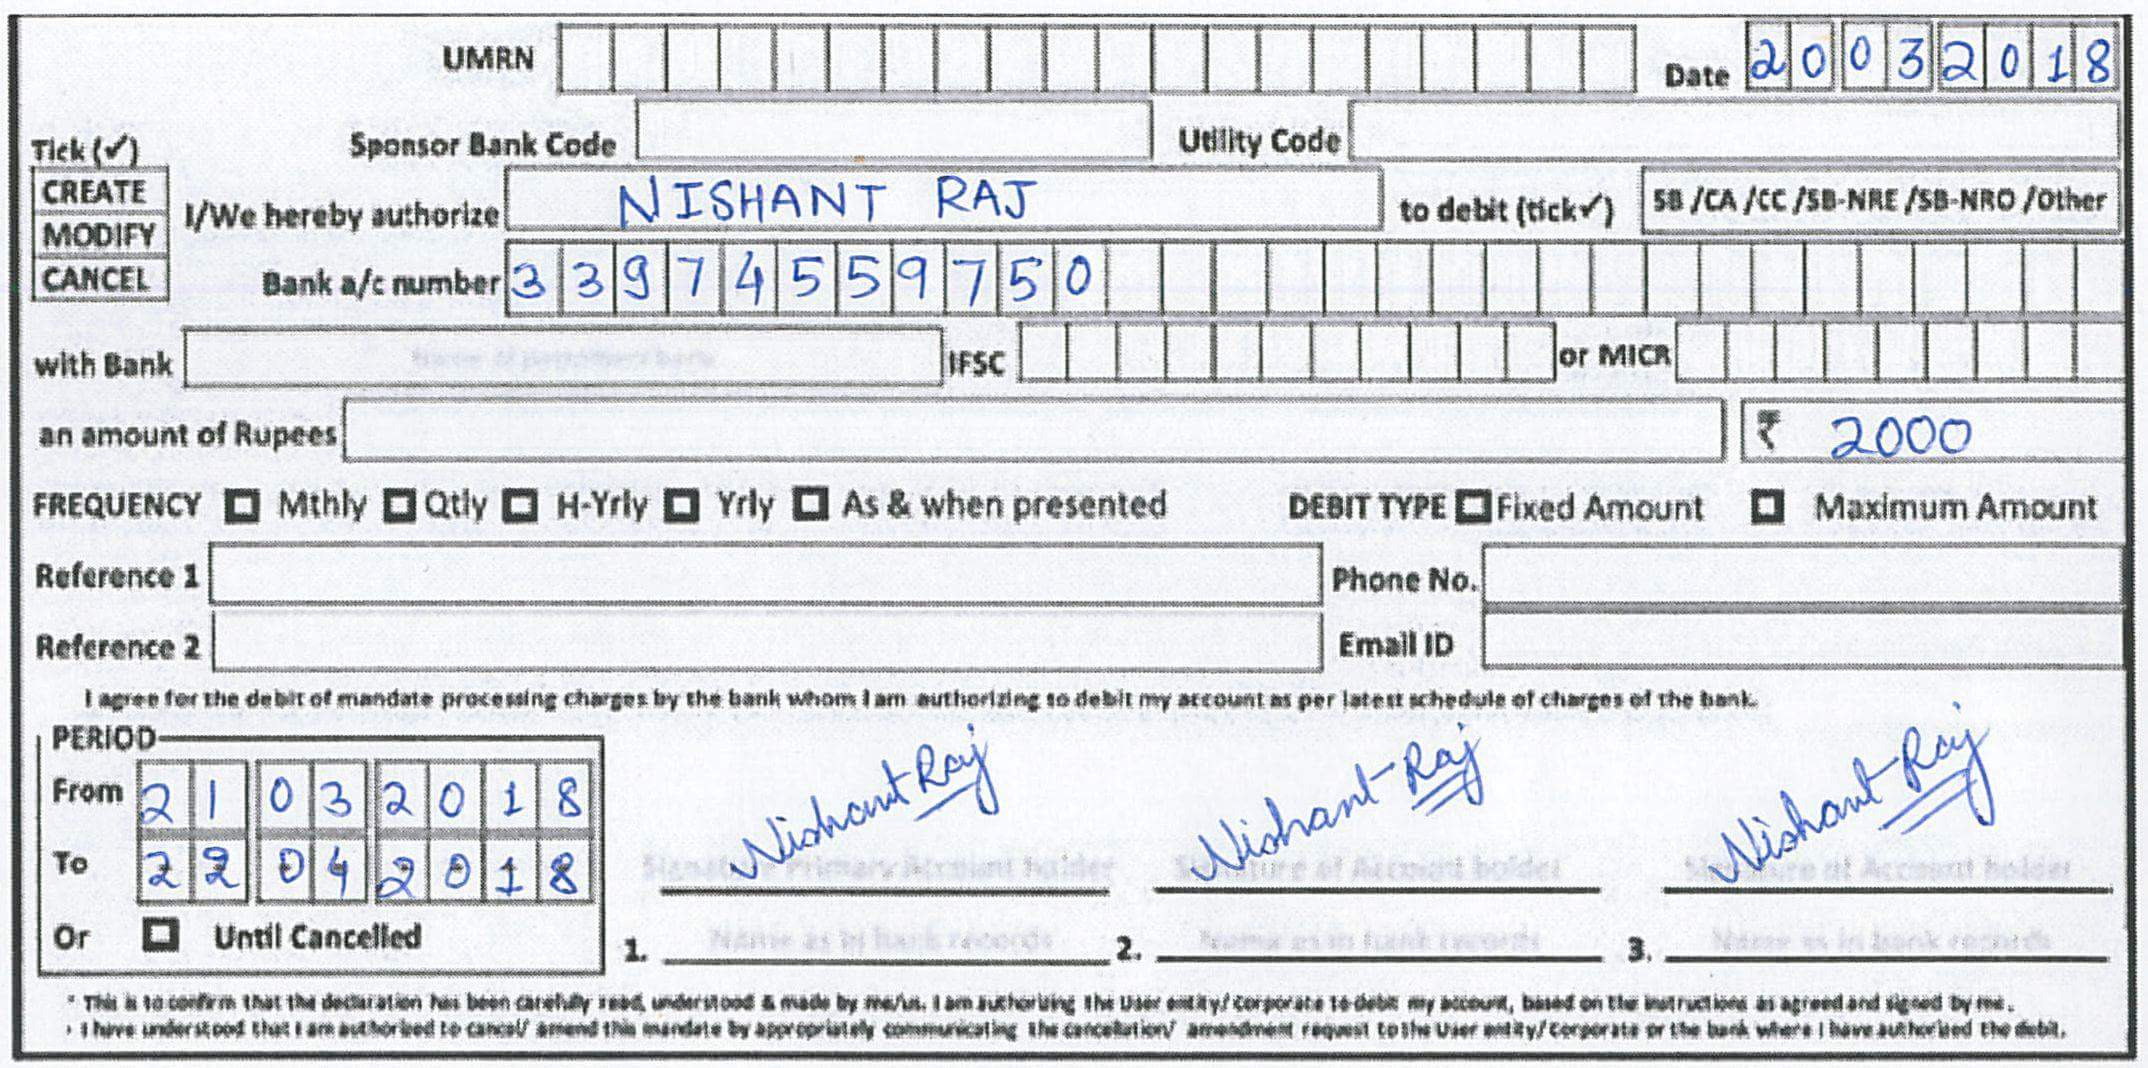 UMRN Date 20032018
Tick (✓) Sponsor Bank Code Utility Code
CREATE
MODIFY
CANCEL
I/We hereby authorize NISHANT RAJ to debit (tick✓) SB /CA /CC /SB-NRE /SB-NRO /Other
Bank a/c number 33974559750
with Bank Name of customers bank IFSC or MICR
an amount of Rupees ₹ 2000
FREQUENCY Mthly Qtly H-Yrly Yrly As & when presented DEBIT TYPE Fixed Amount Maximum Amount
Reference 1 Phone No.
Reference 2 Email ID
I agree for the debit of mandate processing charges by the bank whom I am authorizing to debit my account as per latest schedule of charges of the bank.
PERIOD
From 21032018
To 22042018
Or Until Cancelled
Nishant Raj Nishant Raj Nishant Raj
Signature Primary Account holder Signature of Account holder Signature of Account holder
1. Name as in bank records 2. Name as in bank records 3. Name as in bank records
* This is to confirm that the declaration has been carefully read, understood & made by me/us. I am authorizing the User entity/ Corporate to debit my account, based on the instructions as agreed and signed by me.
• I have understood that I am authorized to cancel/ amend this mandate by appropriately communicating the cancellation/ amendment request to the User entity/ Corporate or the bank where I have authorized the debit.